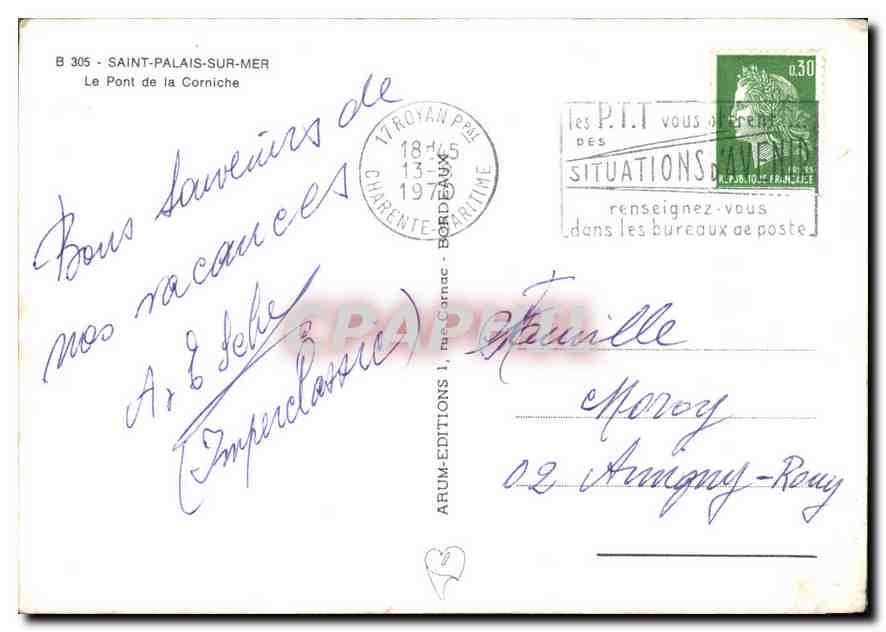 B 305 - SAINT-PALAIS-SUR-MER
Le Pont de la Corniche
Bons Souvenirs de
nos vacances
(Imperclassic)
17 ROYAN PPAL
18H45
13-
1970
CHARENTE-MARITIME
les P.T.T vous offrent
DES
SITUATIONS D'AVENIR
renseignez-vous
dans les bureaux de poste
0,30
REPUBLIQUE FRANÇAISE
ARUM-EDITIONS 1, rue Cornac - BORDEAUX
CPAPHIL
Famille
Moroy
02 Amigny-Rouy